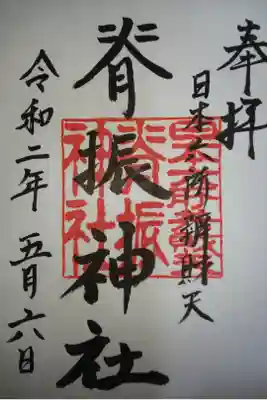 奉拝
日本六所辨財天
脊振神社
令和二年五月六日